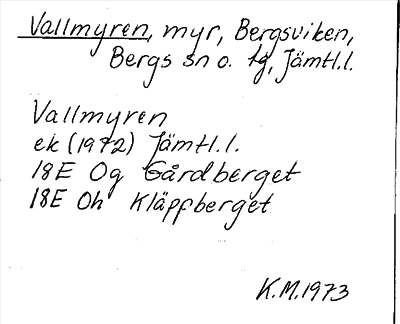 Vallmyren, myr, Bergsviken,
Bergs sn o. tg, Jämtl.l.
Vallmyren
ek (1972) Jämtl.l.
18E 0g Gårdberget
18E 0h Kläppberget
K.M.1973